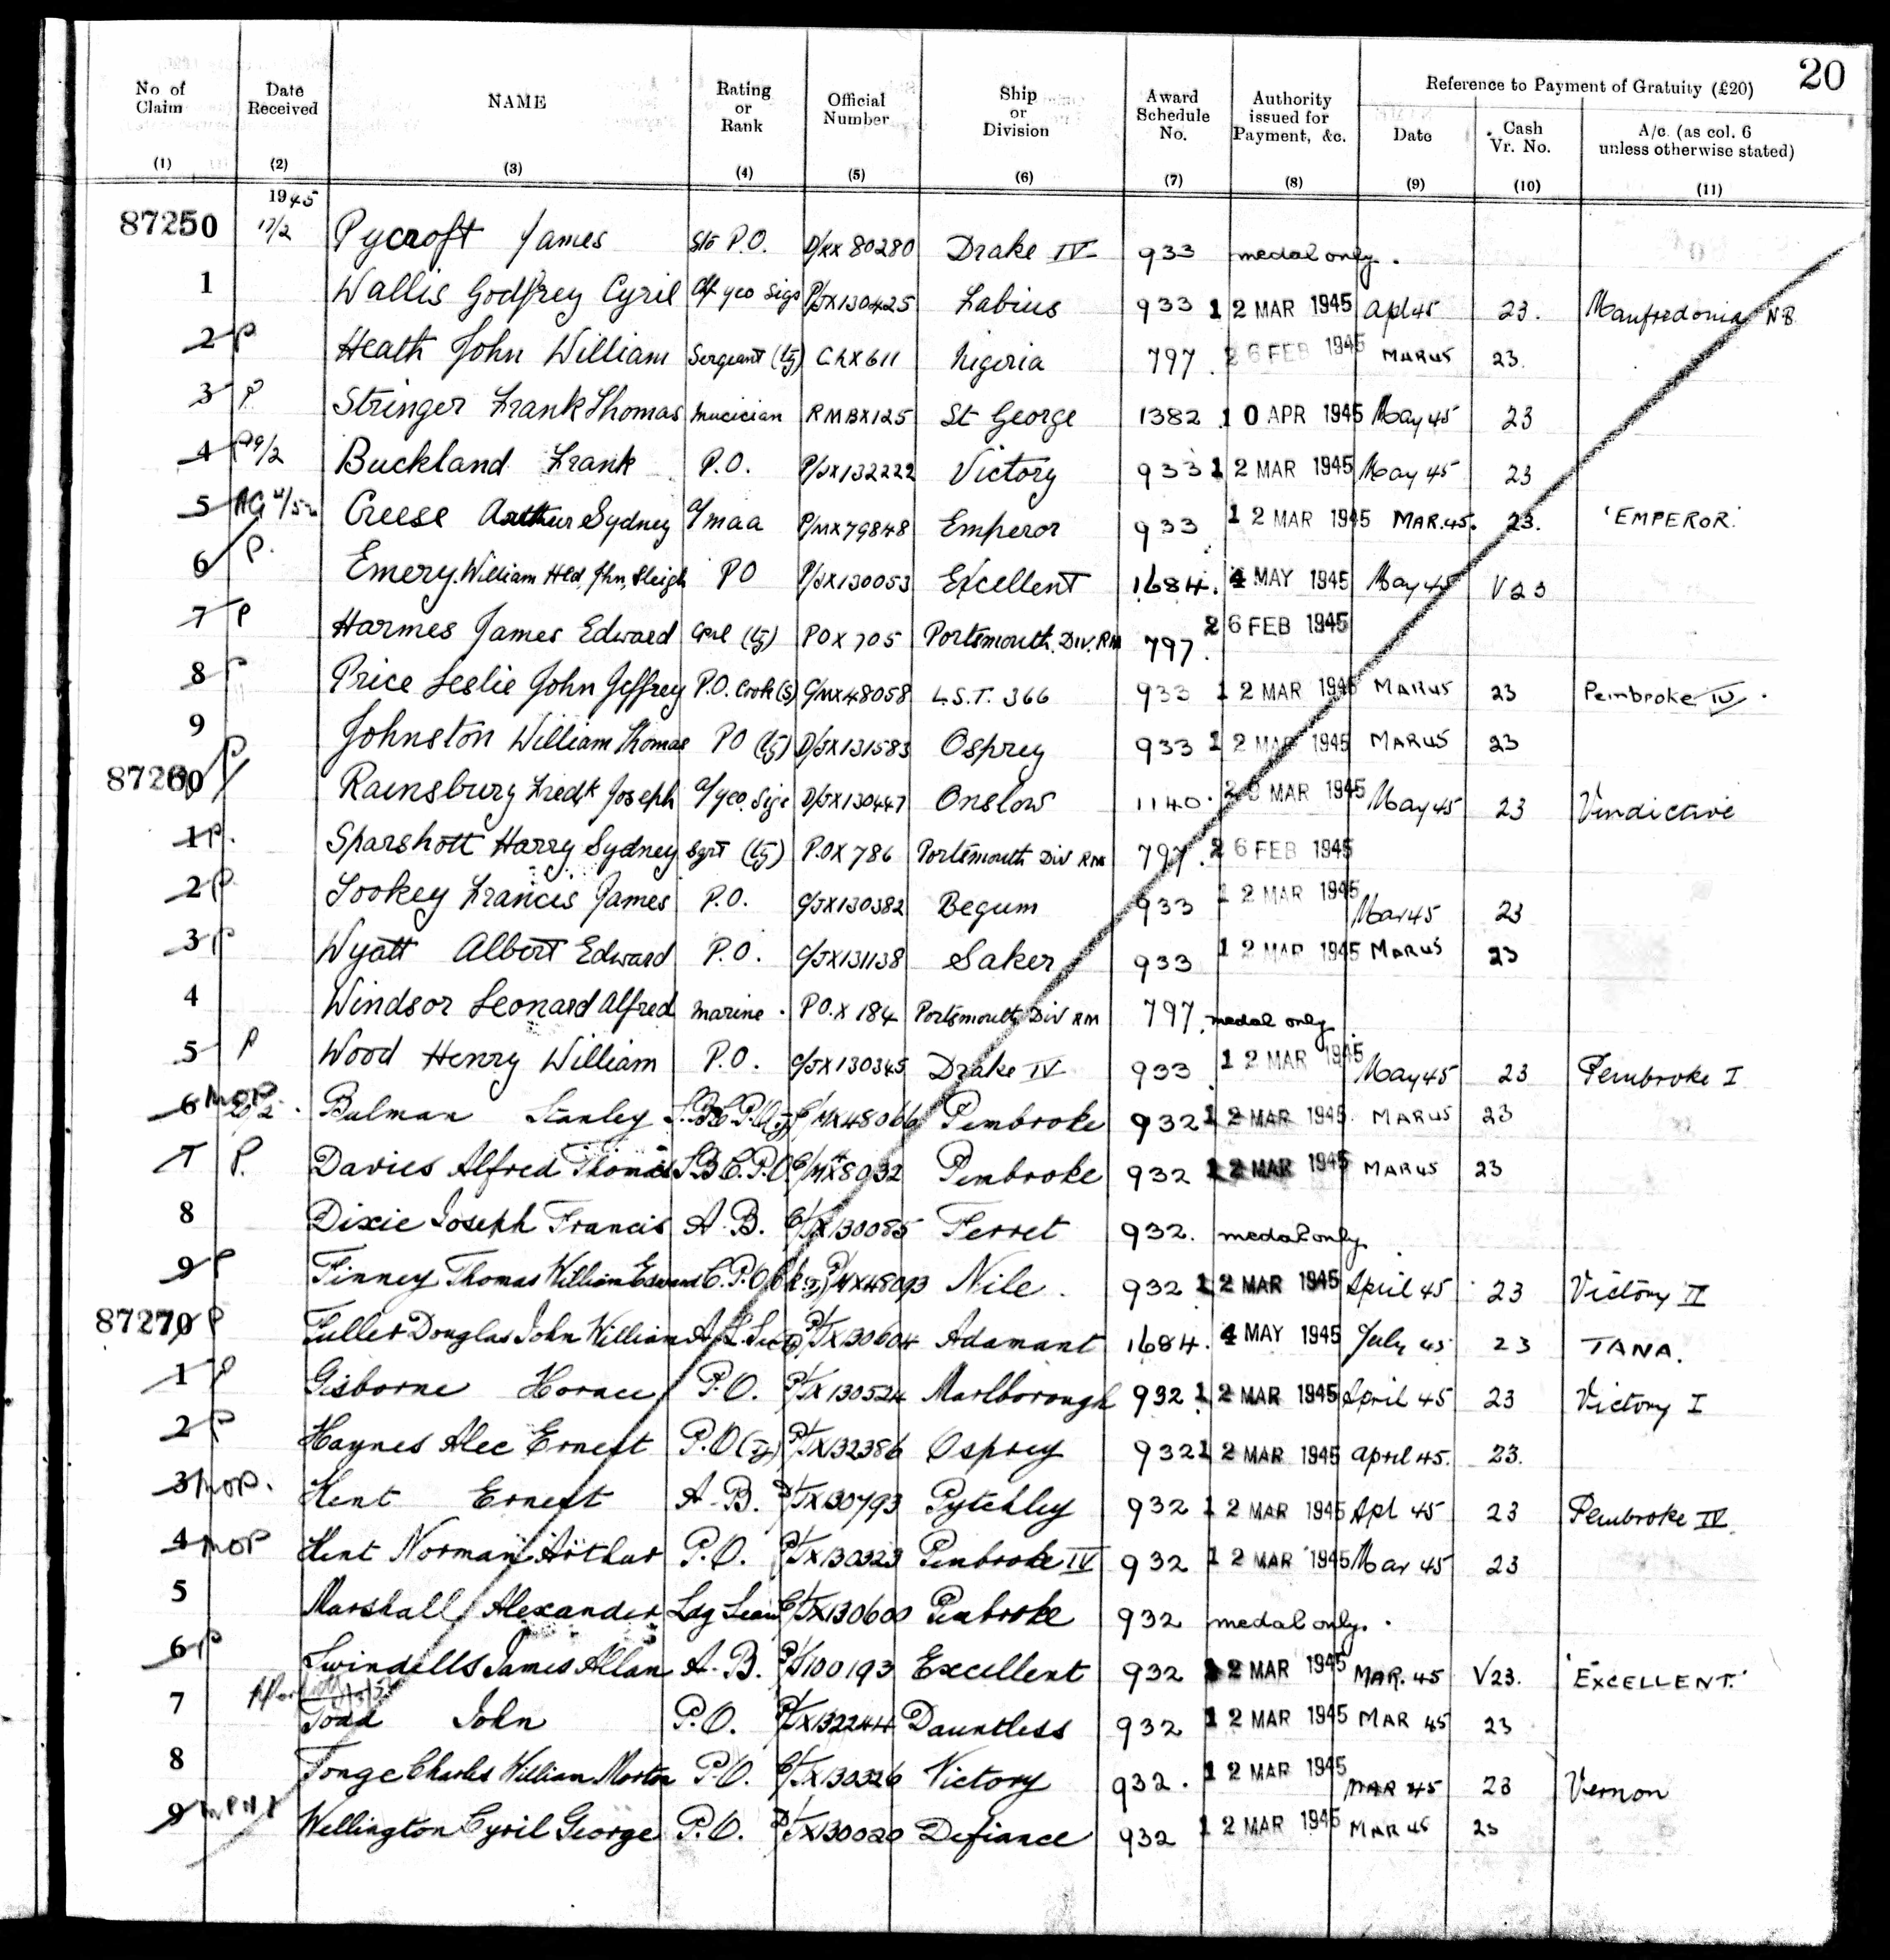 20
No. of Claim Date Received NAME Rating or Rank Official Number Ship or Division Award Schedule No. Authority issued for Payment, &c. Reference to Payment of Gratuity (£20)
Date Cash Vr. No. A/c. (as col. 6 unless otherwise stated)
(1) (2) (3) (4) (5) (6) (7) (8) (9) (10) (11)
1945
87250 17/2 Pycroft James Sto P.O. D/KX 80280 Drake IV 933 medal only.
1 Wallis Godfrey Cyril yeo Sigs P/JX130425 Fabius 933 12 MAR 1945 Apl 45 23. Manfredonia NB
2 P Heath John William Sergeant (ty) ChX611 Nigeria 797. 26 FEB 1945 MAR 45 23.
3 P Stringer Frank Thomas Mucician RMBX125 St George 1382 10 APR 1945 May 45 23
4 P 19/2 Buckland Frank P.O. P/JX132222 Victory 933 12 MAR 1945 May 45 23
5 Creese Arthur Sydney a/maa P/MX79848 Emperor 933 12 MAR 1945 MAR. 45. 23. 'EMPEROR'
6 P. Emery William Hld. Jhn, Sleigh PO P/JX130053 Excellent 1684. 4 MAY 1945 May 45 V23
7 P Harmes James Edward Cpl (ty) POX 705 Portsmouth. Div. RM 797. 26 FEB 1945
8 P Price Leslie John Jeffrey P.O. Cook (s) C/MX48058 L.S.T. 366 933 12 MAR 1945 MAR 45 23 Pembroke IV.
9 Johnston William Thomas PO (ty) D/JX131583 Osprey 933 12 MAR 1945 MAR 45 23
87260 P Rainsbury Fredk Joseph a/yeo. Sigs D/JX130447 Onslow 1140. 20 MAR 1945 May 45 23 Vindictive
1 P. Sparshott Harry Sydney Sgrt (ty) P.OX 786 Portsmouth Div RM 797. 26 FEB 1945
2 P Tookey Francis James P.O. C/JX130382 Begum 933 12 MAR 1945 Mar 45 23
3 P Wyatt Albert Edward P.O. C/JX131138 Saker 933 12 MAR 1945 MAR 45 23
4 Windsor Leonard Alfred Marine. PO.X 184 Portsmouth Div RM 797. medal only
5 P Wood Henry William P.O. C/JX130345 Drake IV 933 12 MAR 1945 May 45 23 Pembroke I
6 MOP 20/2. Bulman Stanley C/MX48066 Pembroke 932 12 MAR 1945. MAR 45 23
7 P. Davies Alfred Thomas S.B.C.P.O. Pembroke 932 12 MAR 1945 MAR 45 23
8 Dixie Joseph Francis A.B. C/JX130085 Ferret 932. medal only.
9 P Finney Thomas William Edward C.P.O. P/MX48093 Nile. 932 12 MAR 1945 April 45 23 Victory II
87270 P Fuller Douglas John William P/JX130604 Adamant 1684. 4 MAY 1945 July 45 23 TANA.
1 P Gisborne Horace P.O. P/JX130524 Marlborough 932 12 MAR 1945 April 45 23 Victory I
2 P Haynes Alec Ernest P.O (ty) P/JX132386 Osprey 932 12 MAR 1945 April 45. 23.
3 MOP. Kent Ernest A.B. JX130793 Pytchley 932 12 MAR 1945 Apl 45 23 Pembroke IV.
4 MOP Kent Norman Arthur P.O. P/JX130323 Pembroke IV 932 12 MAR 1945 Mar 45 23
5 Marshall Alexander Ldg Sean C/JX130600 Pembroke 932 medal only.
6 P Swindells James Allan A.B. P/J100193 Excellent 932 12 MAR 1945 MAR. 45 V23. 'EXCELLENT.'
7 Todd John P.O. P/JX132244 Dauntless 932 12 MAR 1945 MAR 45 23
8 Tonge Charles William Morton P.O. C/JX130326 Victory 932. 12 MAR 1945 MAR 45 23 Vernon
9 Wellington Cyril George P.O. D/JX130020 Defiance 932 12 MAR 1945 MAR 45 23